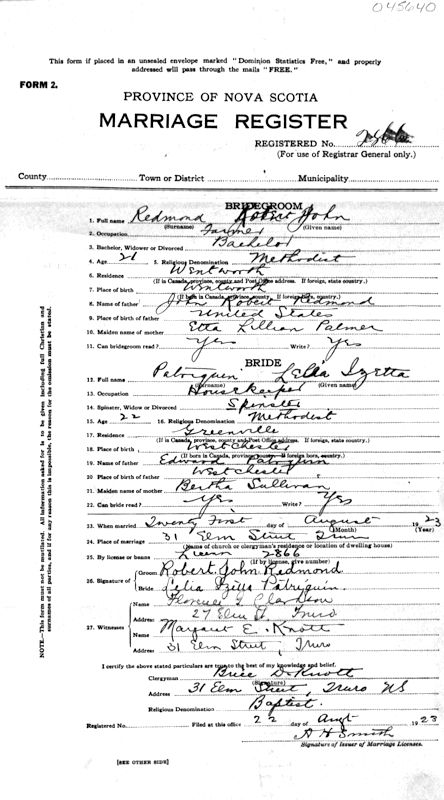 045640
This form if placed in an unsealed envelope marked "Dominion Statistics Free," and properly
addressed will pass through the mails "FREE."
FORM 2.
PROVINCE OF NOVA SCOTIA
MARRIAGE REGISTER
REGISTERED No.
(For use of Registrar General only.)
County Town or District Municipality
BRIDEGROOM
1. Full name Redmond Robert John
(Surname) (Given name)
2. Occupation Farmer
3. Bachelor, Widower or Divorced Bachelor
4. Age 21 5. Religious Denomination Methodist
6. Residence Wentworth
(If in Canada, province, county and Post Office address. If foreign, state country.)
7. Place of birth Wentworth
(If born in Canada, province, county. If foreign born, country.)
8. Name of father John Robert Redmond
9. Place of birth of father United States
10. Maiden name of mother Etta Lillian Palmer
11. Can bridegroom read? Yes Write? Yes
BRIDE
12. Full name Patriquin Lelia Izetta
(Surname) (Given name)
13. Occupation Housekeeper
14. Spinster, Widow or Divorced Spinster
15. Age 22 16. Religious Denomination Methodist
17. Residence Greenville
(If in Canada, province, county and Post Office address. If foreign, state country.)
18. Place of birth Westchester
(If born in Canada, province, county. If foreign born, country.)
19. Name of father Edward Patriquin
20. Place of birth of father Westchester
21. Maiden name of mother Bertha Sullivan
22. Can bride read? Yes Write? Yes
23. When married Twenty First day of August 1923
(Month) (Year)
24. Place of marriage 31 Elm Street Truro
(Name of church or clergyman's residence or location of dwelling house)
25. By license or banns Licen 2866
(If by license, give number)
26. Signature of Groom Robert John Redmond
Bride Lelia Izilla Patriquin
27. Witnesses Name Florence G. Clarkson
Address 27 Elm St, Truro
Name Margaret E. Knott
Address 31 Elm Street, Truro
I certify the above stated particulars are true to the best of my knowledge and belief.
Clergyman Brice D. Knott
(Signature)
Address 31 Elm Street, Truro NS
Religious Denomination Baptist
Registered No. Filed at this office 22 day of Augt 1923
A H Smith
Signature of Issuer of Marriage Licenses.
[SEE OTHER SIDE]
NOTE.—This form must not be mutilated. All information asked for is to be given including full Christian and
surnames of all parties, and if for any reason this is impossible, the reason for the omission must be stated.